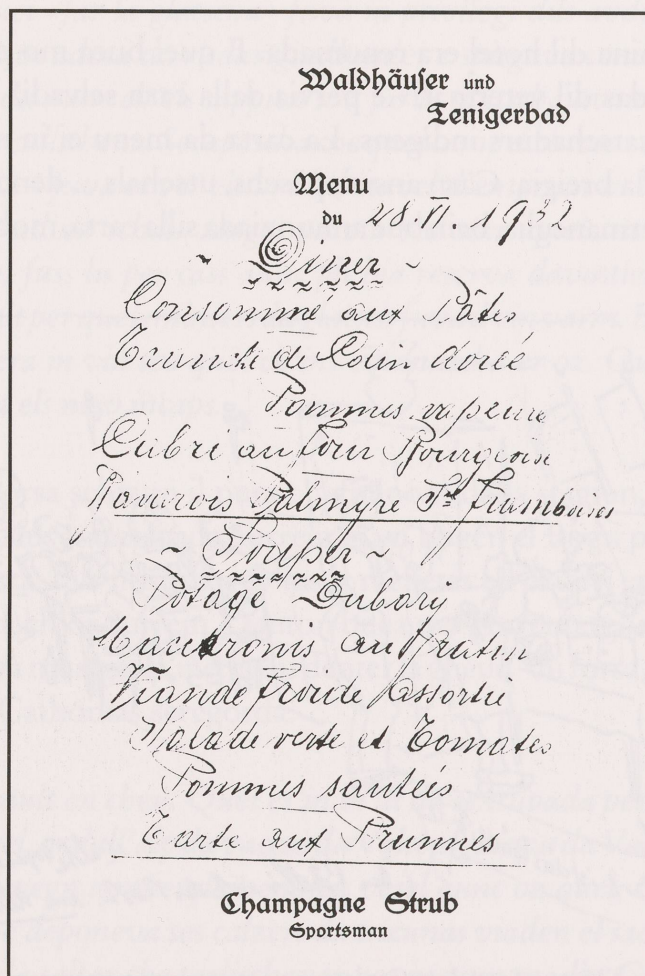 Waldhäuser und
Tenigerbad
Menu
du 28.VI.1932
~ Diner ~
Consommé aux Pâtes
Tranche de Colin dorée
Pommes vapeur
au four Bourgeoise
Bavarois Palmyre St framboises
~ Souper ~
Potage Dubary
Maccaronis au gratin
Viande froide assortie
Salade verte et Tomates
Pommes sautées
Tarte aux Prunnes
Champagne Strub
Sportsman